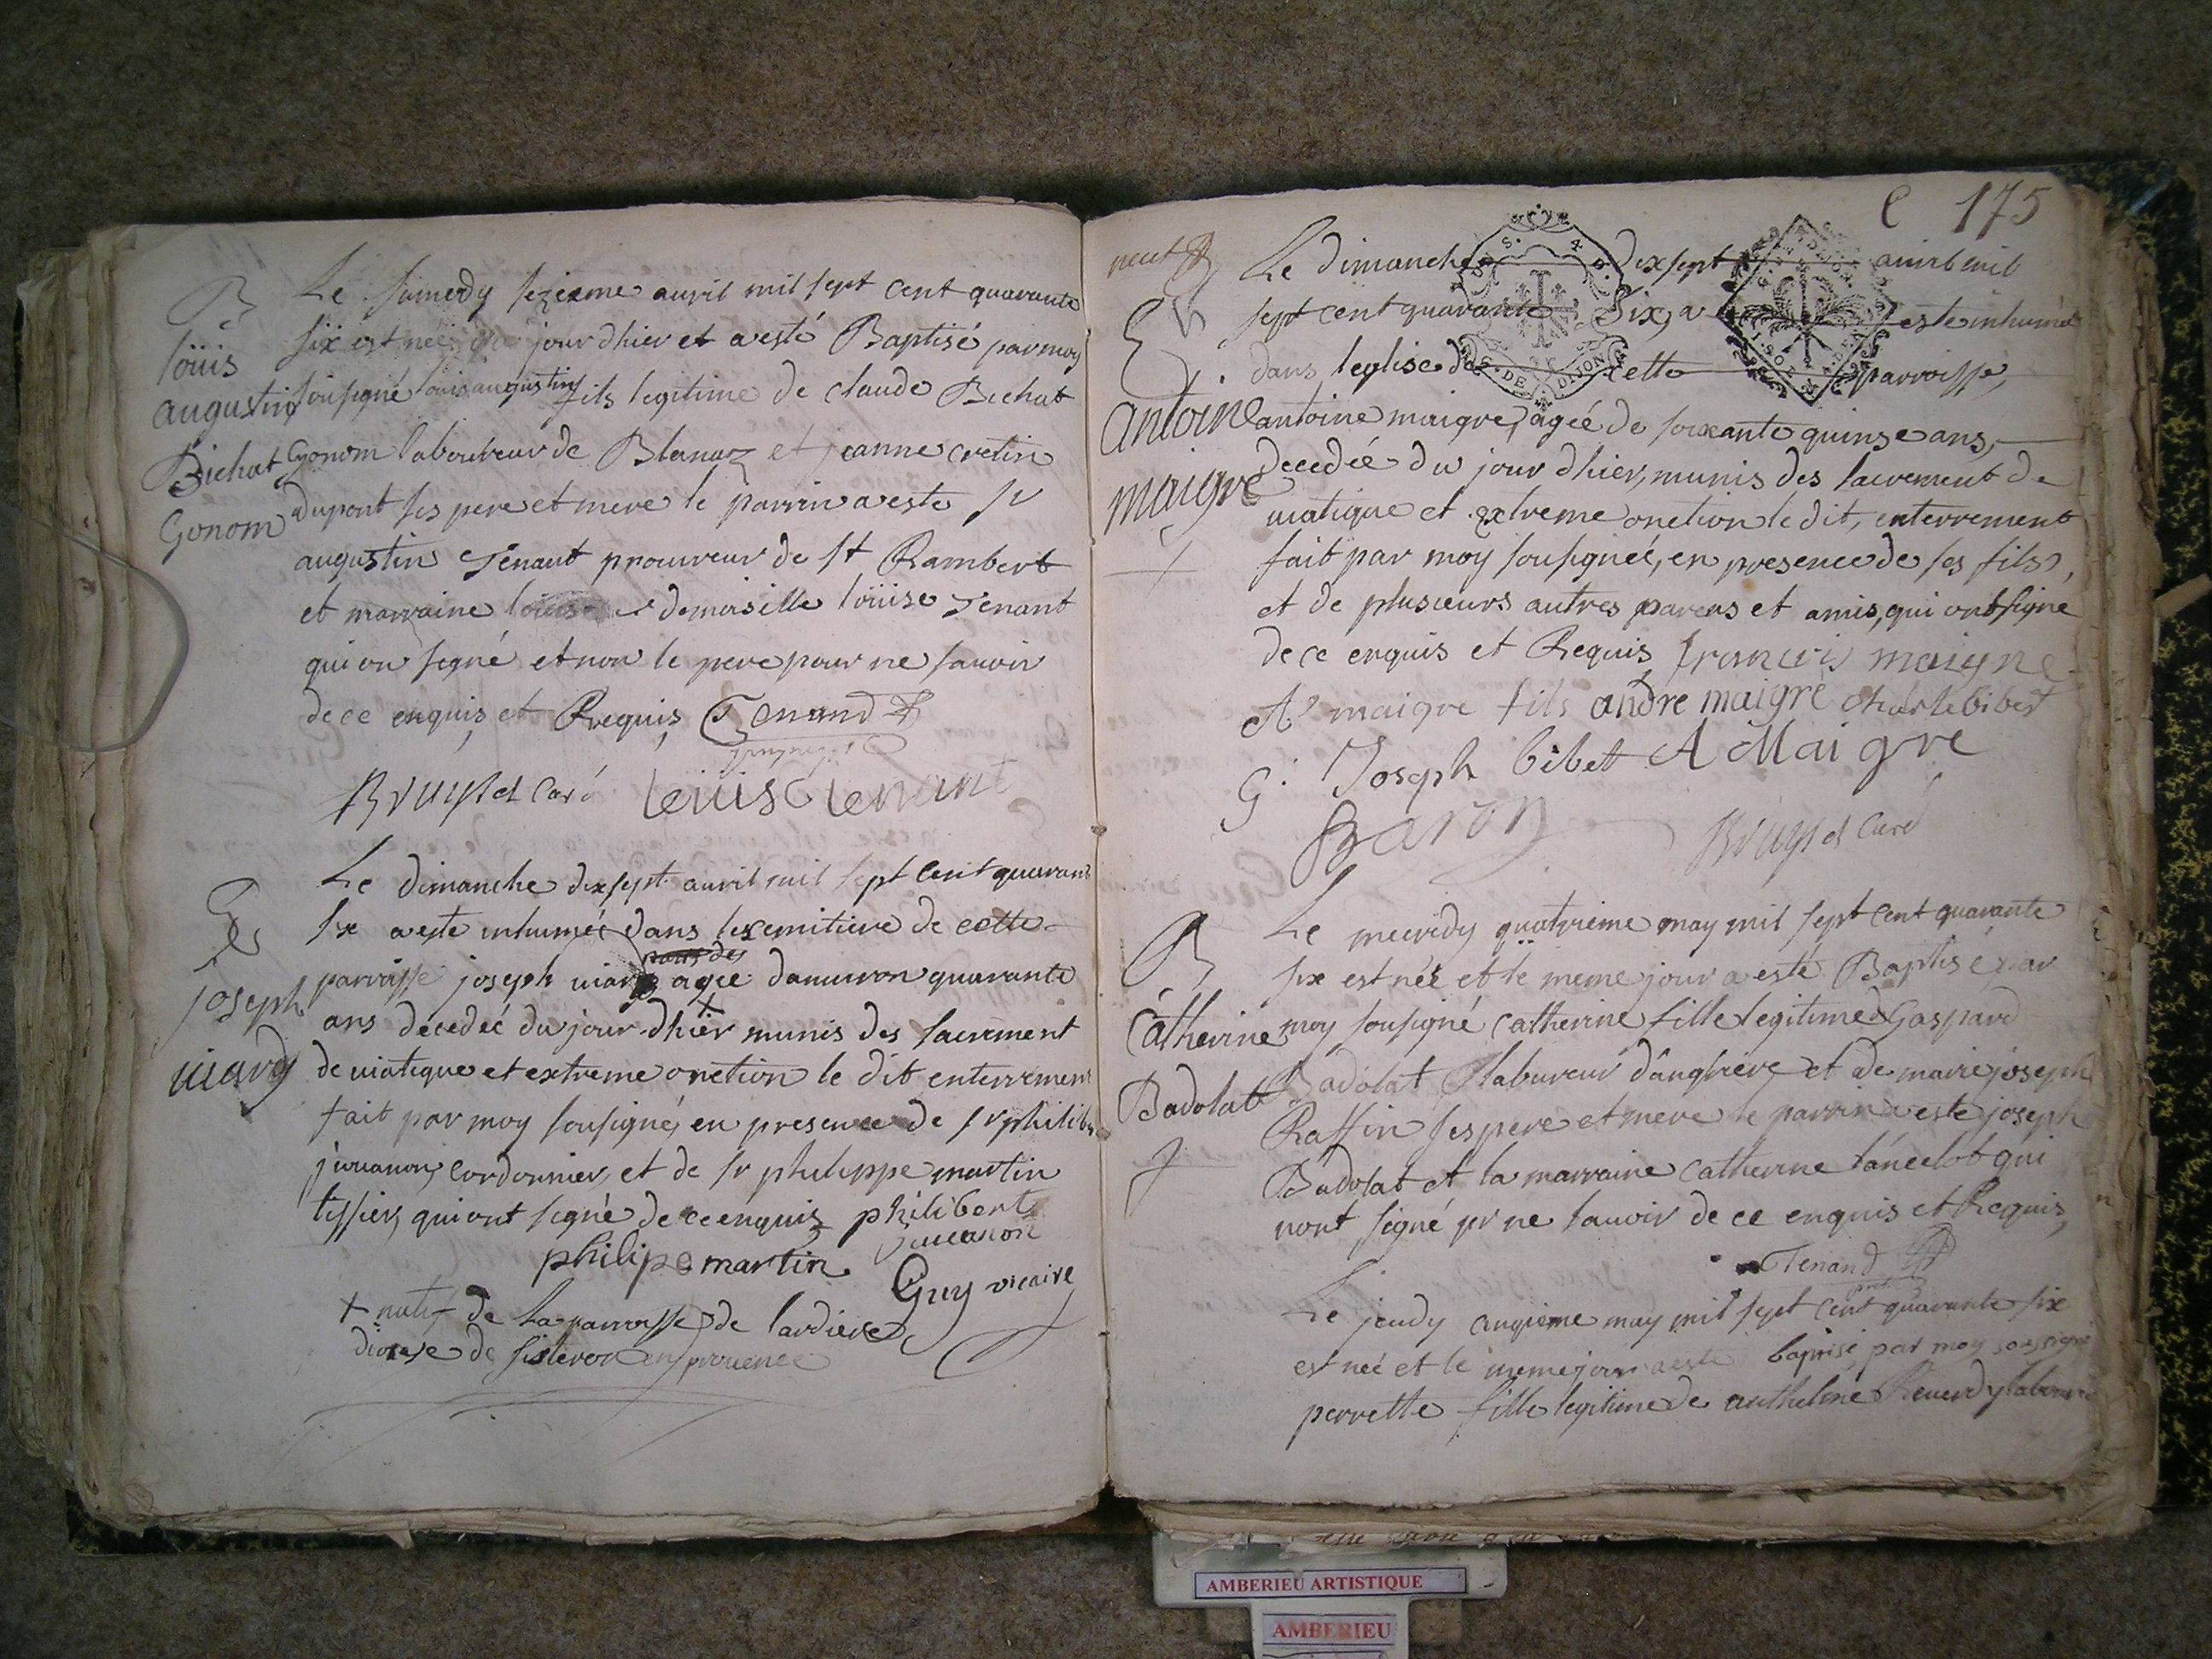 B
Le samedy sezieme auril mil sept cent quarante
six est néé du jour dhier et a esté Baptisé par moy
soussigné louis augustin fils legitime de claude Bichat
Gonom laboureur de Blanaz et jeanne cretin
dupont ses pere et mere le parrin a este sr
augustin Tenant procureur de st Rambert
et marraine demoiselle loüise Tenant
qui on segné et non le pere pour ne sauoir
de ce enquis et Requis Tenand
Bruyset Curé Leüise Tenant
loüis
augustin
Bichat
Gonom
E
Le dimanche dixsept auril mil sept cent quarante
six a este inhumée dans le cemitiere de cette
parroisse joseph uiard agée danuiron quarante
ans decedéé du jour dhier munis des sacrement
de uiatique et extreme onction le dit enterrement
fait par moy sousigné, en presence de sr philibe
juuanon, cordonnier, et de sr philippe martin
tissier, qui ont segné de ce enquis philibert
juuanon
philipe martin
Guy vicaire
+ natif de la parroisse de lardiere
diocese de sisteron en prouence
joseph
uiard
C 175
Le dimanche dixsept auril mil
sept cent quarante six, a este inhumé
dans leglise de cette parroisse,
antoine maigre, agéé de soixante quinse ans,
decedéé du jour dhier, munis des sacrement de
uiatique et extreme onction le dit, enterrement
fait par moy sousignéé, en presence de ses fils,
et de plusieurs autres parens et amis, qui ont signe
de ce enquis et Requis françois maigre
maigre fils andre maigre charle bibet
G. Joseph bibet A Maigre
Baron Bruyset Curé
E
antoine
maigre
S. S. 4 D.
G. DE DIJON
B
Le mecredy quatrieme may mil sept cent quarante
six est néé et le meme jour a esté Baptisé par
moy sousigné catherine fille legitime d Gaspard
Badolat labureur dângriere et de marie joseph
Raffin ses pere et mere le parrin a este joseph
Badolat et la marraine catherine lancelot qui
nont signé pr ne sauoir de ce enquis et Requis,
Tenand
Catherine
Badolat
Le jeudy cinqieme may mil sept cent quarante six
est néé et le meme jour a este baptisé par moy sousigné
perrette fille legitime de anthelme Reuerdy laboureu
AMBERIEU ARTISTIQUE
AMBERIEU